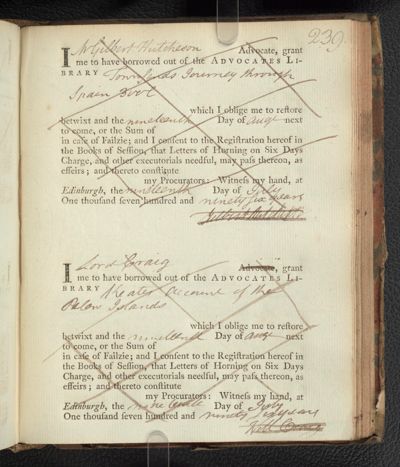 239.
I Mr Gilbert Hutcheson Advocate, grant
me to have borrowed out of the ADVOCATES LI-
BRARY Townsends Journey through
Spain 3 vol
which I oblige me to restore
betwixt and the nineteenth Day of augt next
to come, or the Sum of
in case of Failzie; and I consent to the Registration hereof in
the Books of Session, that Letters of Horning on Six Days
Charge, and other executorials needful, may pass thereon, as
effeirs; and thereto constitute
my Procurators: Witness my hand, at
Edinburgh, the nineteenth Day of July
One thousand seven hundred and ninety six years
I Lord Craig Advocate, grant
me to have borrowed out of the ADVOCATES LI-
BRARY Keates Account of the
Pelew Islands
which I oblige me to restore
betwixt and the nineteenth Day of augt next
to come, or the Sum of
in case of Failzie; and I consent to the Registration hereof in
the Books of Session, that Letters of Horning on Six Days
Charge, and other executorials needful, may pass thereon, as
effeirs; and thereto constitute
my Procurators: Witness my hand, at
Edinburgh, the nineteenth Day of July
One thousand seven hundred and ninety six years
Will Craig